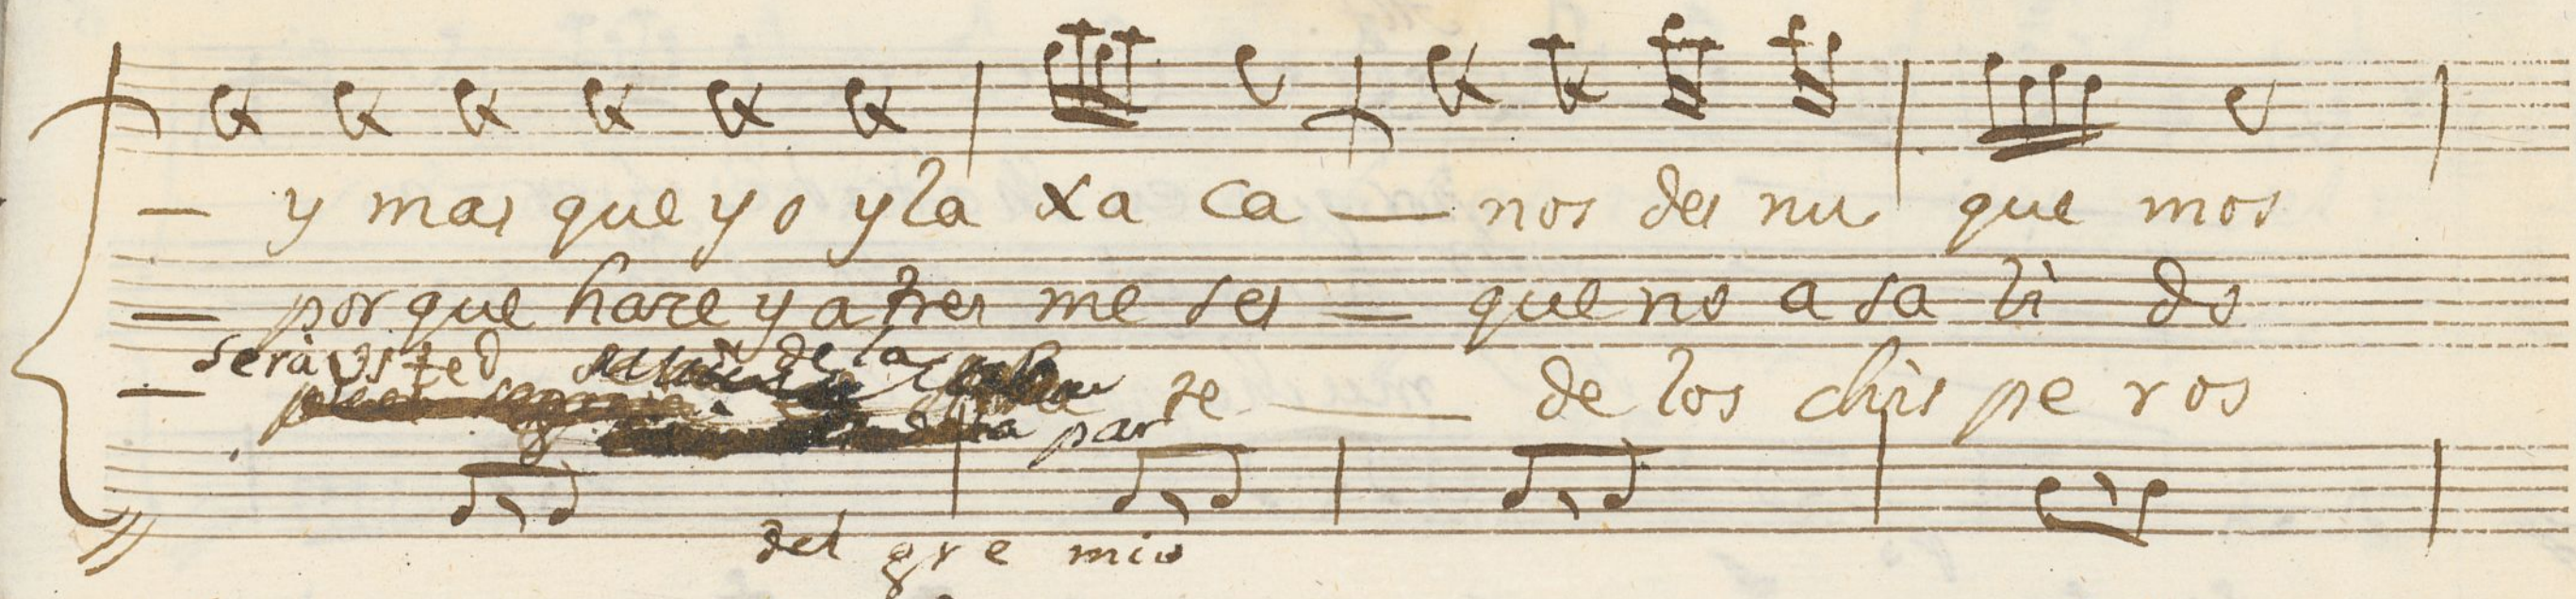 — y mas que yo y la xa ca — nos des nu que mos
— porque hace y a tres me ses — que no a sa li do
sera usted de la
— te — de los chis pe ros
ta par
del gre mio